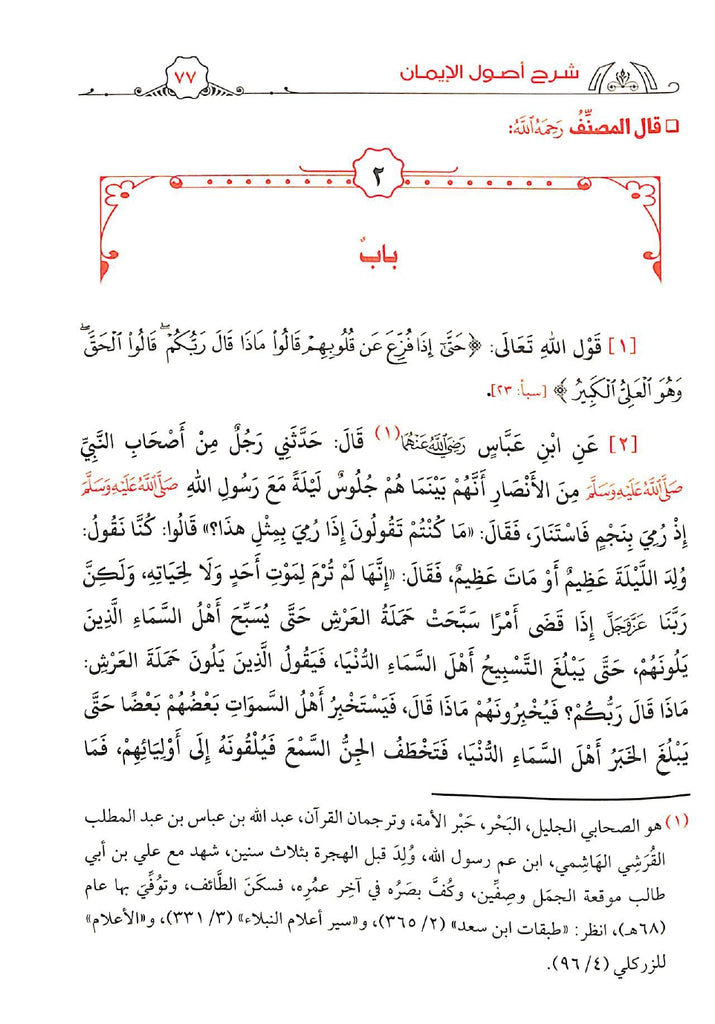 شرح أصول الإيمان
٧٧
□ قال المصنِّفُ رَحِمَهُ اللَّهُ:
٢
بابٌ
[١] قَوْل اللهِ تَعَالَى: ﴿حَتَّىٰٓ إِذَا فُزِّعَ عَن قُلُوبِهِمۡ قَالُواْ مَاذَا قَالَ رَبُّكُمۡۖ قَالُواْ ٱلۡحَقَّۖ
وَهُوَ ٱلۡعَلِيُّ ٱلۡكَبِيرُ﴾ [سبأ: ٢٣].
[٢] عَنِ ابْنِ عَبَّاسٍ رَضِيَ اللَّهُ عَنْهُمَا(١) قَالَ: حَدَّثَنِي رَجُلٌ مِنْ أَصْحَابِ النَّبِيِّ
صَلَّى اللَّهُ عَلَيْهِ وَسَلَّمَ مِنَ الأَنْصَارِ أَنَّهُمْ بَيْنَمَا هُمْ جُلُوسٌ لَيْلَةً مَعَ رَسُولِ اللهِ صَلَّى اللَّهُ عَلَيْهِ وَسَلَّمَ
إِذْ رُمِيَ بِنَجْمٍ فَاسْتَنَارَ، فَقَالَ: «مَا كُنْتُمْ تَقُولُونَ إِذَا رُمِيَ بِمِثْلِ هذَا؟» قَالُوا: كُنَّا نَقُولُ:
وُلِدَ اللَّيْلَةَ عَظِيمٌ أَوْ مَاتَ عَظِيمٌ، فَقَالَ: «إِنَّهَا لَمْ تُرْمَ لِمَوْتِ أَحَدٍ وَلَا لِحَيَاتِهِ، وَلَكِنَّ
رَبَّنَا عَزَّ وَجَلَّ إِذَا قَضَى أَمْرًا سَبَّحَتْ حَمَلَةُ العَرْشِ حَتَّى يُسَبِّحَ أَهْلُ السَّمَاءِ الَّذِينَ
يَلُونَهُمْ، حَتَّى يَبْلُغَ التَّسْبِيحُ أَهْلَ السَّمَاءِ الدُّنْيَا، فَيَقُولُ الَّذِينَ يَلُونَ حَمَلَةَ العَرْشِ:
مَاذَا قَالَ رَبُّكُمْ؟ فَيُخْبِرُونَهُمْ مَاذَا قَالَ، فَيَسْتَخْبِرُ أَهْلُ السَّمَوَاتِ بَعْضُهُمْ بَعْضًا حَتَّى
يَبْلُغَ الخَبَرُ أَهْلَ السَّمَاءِ الدُّنْيَا، فَتَخْطَفُ الجِنُّ السَّمْعَ فَيُلْقُونَهُ إِلَى أَوْلِيَائِهِمْ، فَمَا
(١) هو الصحابي الجليل، البَحْر، حَبْر الأمة، وترجمان القرآن، عبد الله بن عباس بن عبد المطلب
القُرَشِي الهَاشِمي، ابن عم رسول الله، وُلِدَ قبل الهجرة بثلاث سنين، شهد مع علي بن أبي
طالب موقعة الجمَل وصِفِّين، وكُفَّ بصَرُه في آخِر عمُرِه، فسكَنَ الطَّائف، وتوُفِّيَ بها عام
(٦٨هـ)، انظر: «طبقات ابن سعد» (٢/ ٣٦٥)، و«سير أعلام النبلاء» (٣/ ٣٣١)، و«الأعلام»
للزركلي (٤/ ٩٦).